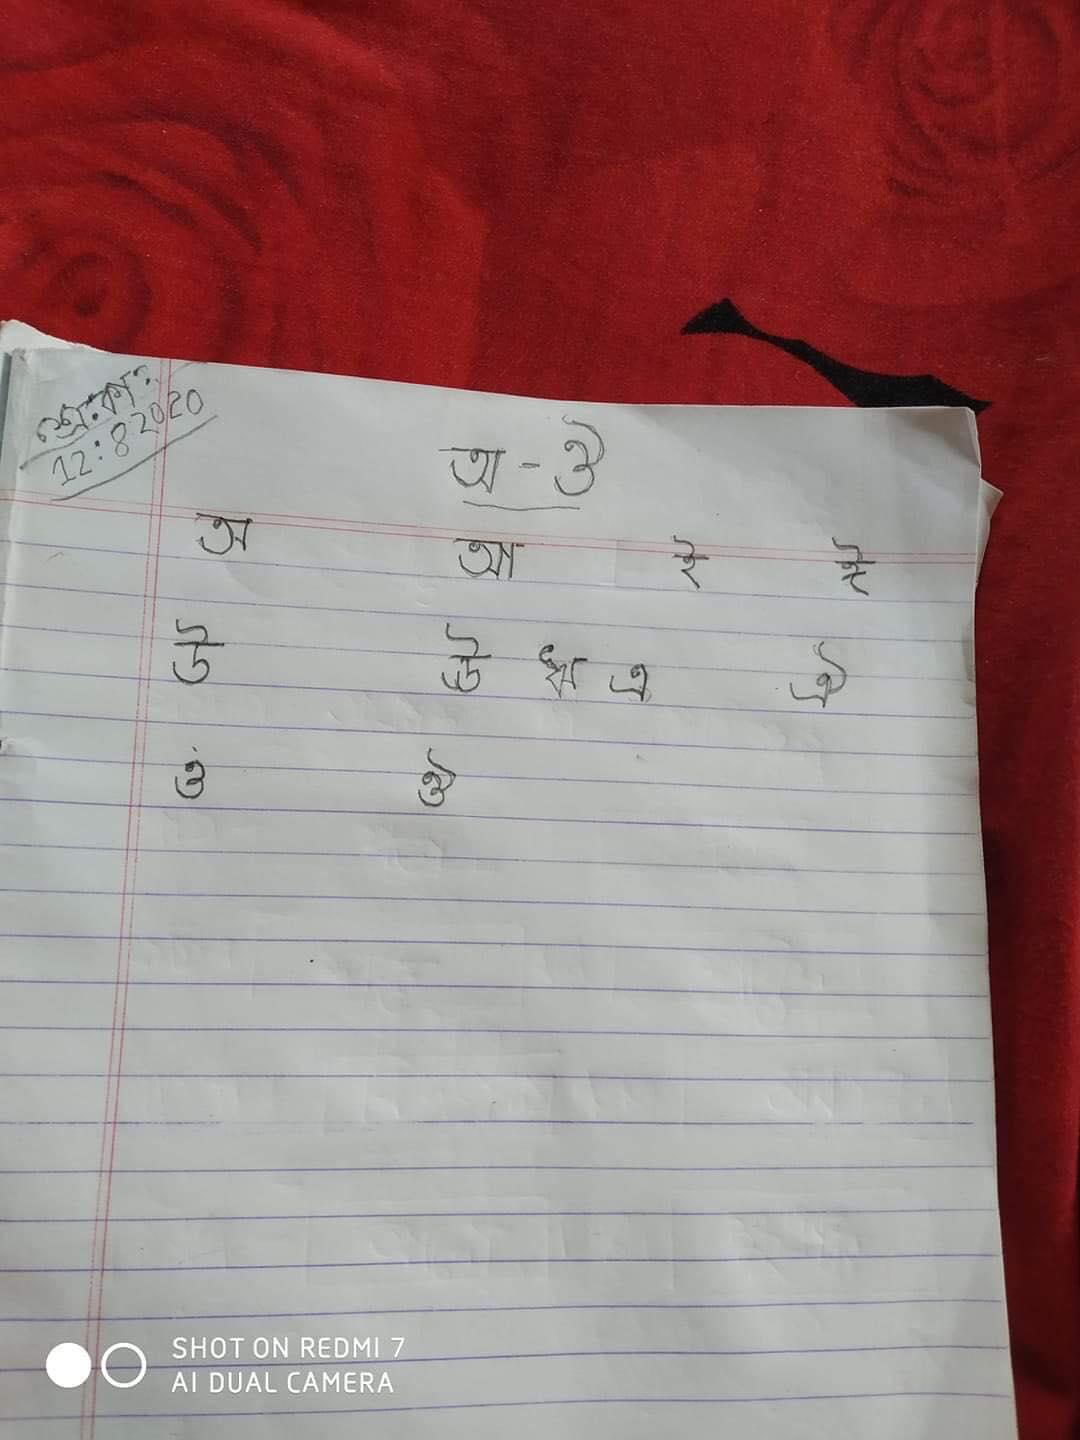 শ্রে:কা:
12:8 2020
অ - ঔ
অ আ ই ঈ
উ ঊ ঋ এ ঐ
ও ঔ
SHOT ON REDMI 7
AI DUAL CAMERA